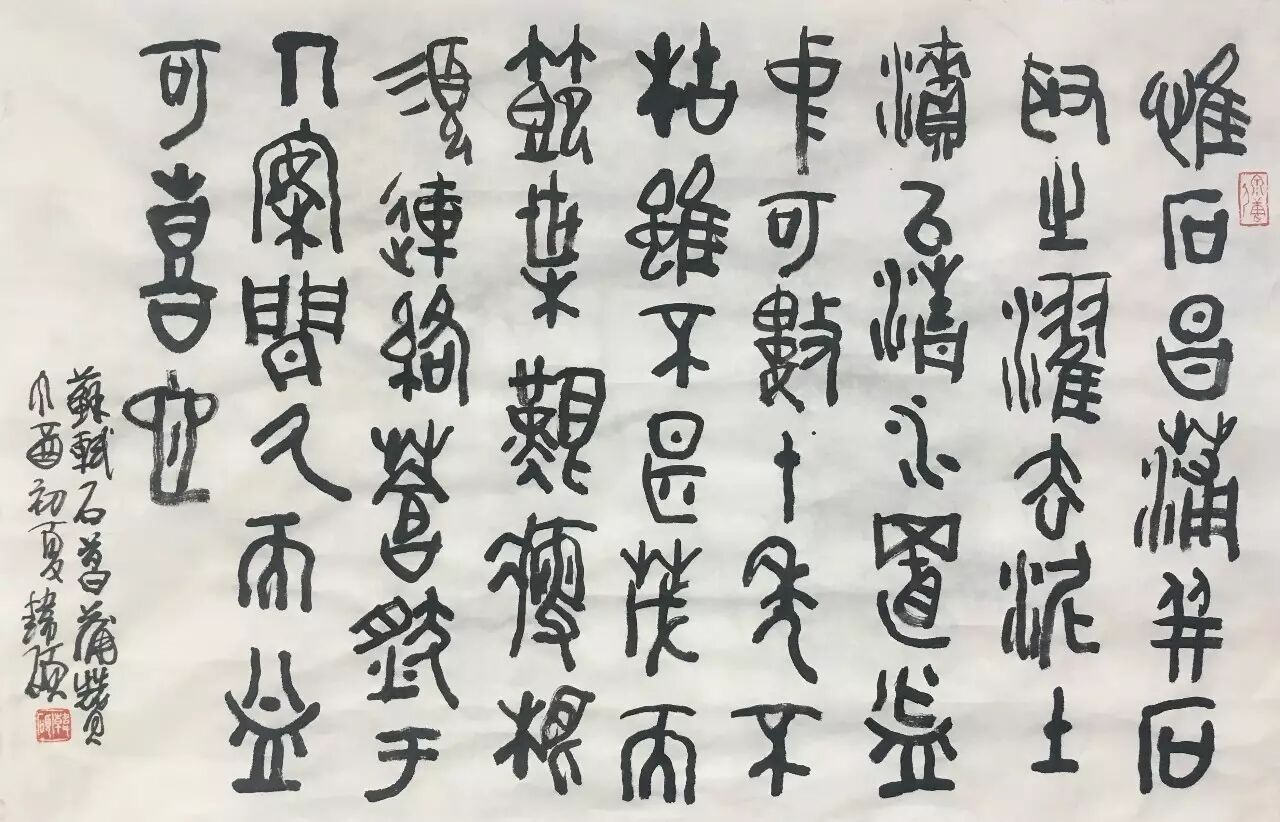 惟石昌蒲并石
取之濯去泥土
漬以清水置盆
中可數十年不
枯雖不甚茂而
節葉堅瘦根
須連絡蒼然于
几案間久而益
可喜也
蘇軾石菖蒲贊
丁酉初夏韓碩